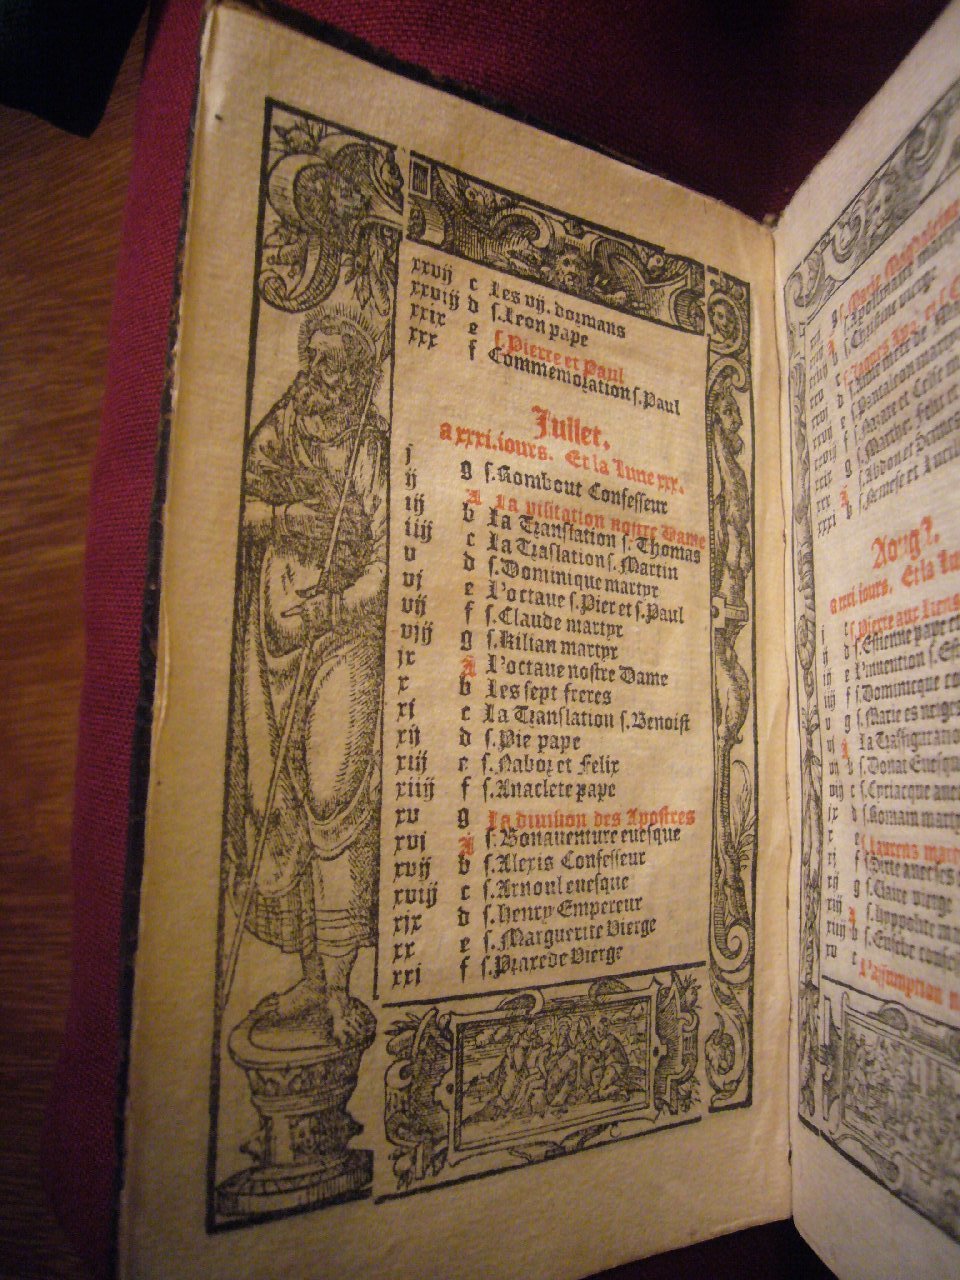 xxvij c Les vij. dormans
xxviij d s. Leon pape
xxix e s. Pierre et Paul
xxx f Commemoration s. Paul
Jullet.
a xxxi. iours. Et la lune xxx.
j g s. Rombout Confesseur
ij A La visitation nostre Dame
iij b La Translation s. Thomas
iiij c La Traslation s. Martin
v d s. Dominique martyr
vj e L'octave s. Pier et s. Paul
vij f s. Claude martyr
viij g s. Kilian martyr
ix A L'octave nostre Dame
x b Les sept freres
xi c La Translation s. Benoist
xij d s. Pie pape
xiij e s. Nabor et Felix
xiiij f s. Anaclete pape
xv g La division des Apostres
xvi A s. Bonaventure evesque
xvij b s. Alexis Confesseur
xviij c s. Arnoul evesque
xix d s. Henry Empereur
xx e s. Marguerite Vierge
xxi f s. Praxede Vierge
s. Marie Magdaleine
s. Apollinaire
s. Christine vierge
s. Jaques
s. Pantaleon
s. Nazare et Celse
s. Marthe. Felix et
s. Abdon et Sennes
xxxi b
Aougst.
a xxxi iours. Et la lu
s. Pierre aux liens
d s. Estienne pape et
e L'invention s. Est
f s. Dominicque co
v g s. Marie es neiges
vj A La Trasfiguratio
b s. Donat Evesque
c s. Cyriacque avec
ix d s. Romain martyr
x e s. Laurens mart
f
g s. Claire vierge
A s. Hyppolite ma
b s. Eusebe confes
c L'assumption